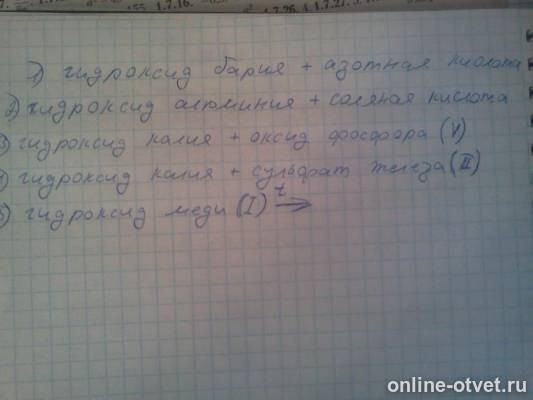 1) гидроксид бария + азотная кислота
2) гидроксид алюминия + соляная кислота
3) гидроксид калия + оксид фосфора (V)
4) гидроксид калия + сульфат железа (II)
5) гидроксид меди (I) t →
online-otvet.ru